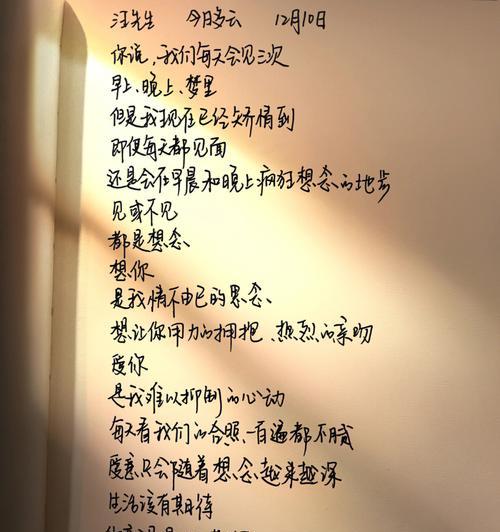 汪先生 今日多云 12月10日
你说，我们每天会见三次
早上、晚上、梦里
但是我现在已经矫情到
即使每天都见面
还是会在早晨和晚上疯狂想念的地步
见或不见
都是想念、
想你
是我情不由己的思念、
想让你用力的拥抱、热烈的亲吻
爱你
是我难以抑制的心动
每天看我们的合照、一百遍都不腻
爱意只会随着想念越来越深
生活该有期待